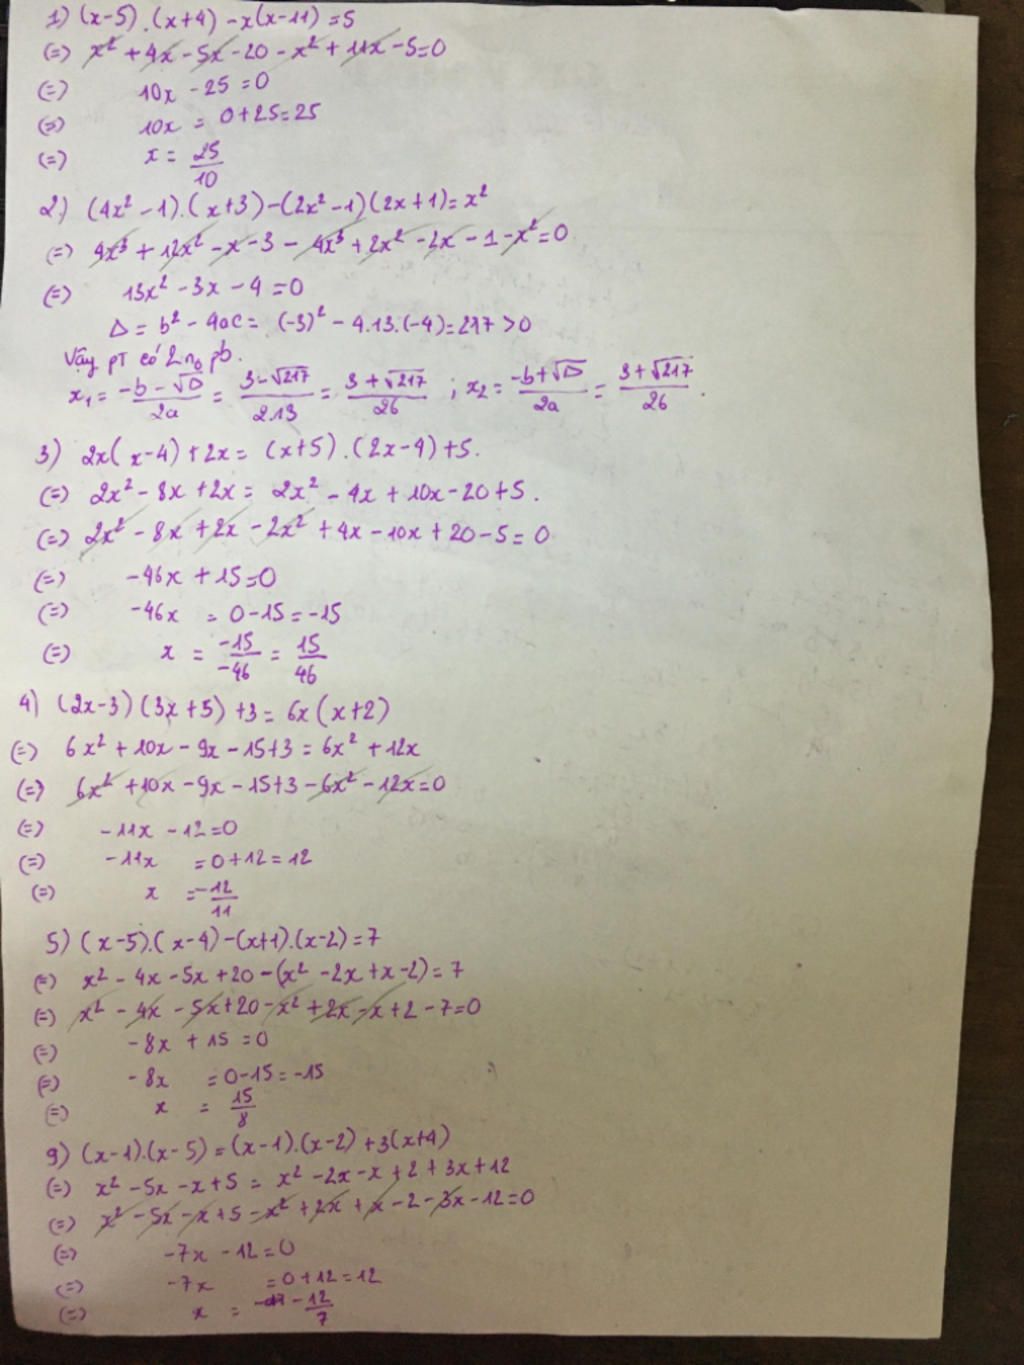 1) (x-5).(x+4) - x(x-11) = 5
(=) x² + 4x - 5x - 20 - x² + 11x - 5 = 0
(=) 10x - 25 = 0
(=) 10x = 0 + 25 = 25
(=) x = 25/10
2) (4x² - 1).(x+3) - (2x² - 1)(2x+1) = x²
(=) 4x³ + 12x² - x - 3 - 4x³ + 2x² - 2x - 1 - x² = 0
(=) 13x² - 3x - 4 = 0
Δ = b² - 4ac = (-3)² - 4.13.(-4) = 217 > 0
Vậy PT có 2 n₀ pb.
x₁ = (-b - √Δ)/2a = (3 - √217)/2.13 = (3 + √217)/26 ; x₂ = (-b + √Δ)/2a = (3 + √217)/26.
3) 2x(x-4) + 2x = (x+5).(2x-4) + 5.
(=) 2x² - 8x + 2x = 2x² - 4x + 10x - 20 + 5.
(=) 2x² - 8x + 2x - 2x² + 4x - 10x + 20 - 5 = 0
(=) -46x + 15 = 0
(=) -46x = 0 - 15 = -15
(=) x = -15/-46 = 15/46
4) (2x-3)(3x+5) + 3 = 6x(x+2)
(=) 6x² + 10x - 9x - 15 + 3 = 6x² + 12x
(=) 6x² + 10x - 9x - 15 + 3 - 6x² - 12x = 0
(=) -11x - 12 = 0
(=) -11x = 0 + 12 = 12
(=) x = -12/11
5) (x-5).(x-4) - (x+1).(x-2) = 7
(=) x² - 4x - 5x + 20 - (x² - 2x + x - 2) = 7
(=) x² - 4x - 5x + 20 - x² + 2x - x + 2 - 7 = 0
(=) -8x + 15 = 0
(=) -8x = 0 - 15 = -15
(=) x = 15/8
9) (x-1).(x-5) = (x-1).(x-2) + 3(x+4)
(=) x² - 5x - x + 5 = x² - 2x - x + 2 + 3x + 12
(=) x² - 5x - x + 5 - x² + 2x + x - 2 - 3x - 12 = 0
(=) -7x - 12 = 0
(=) -7x = 0 + 12 = 12
(=) x = -12/7